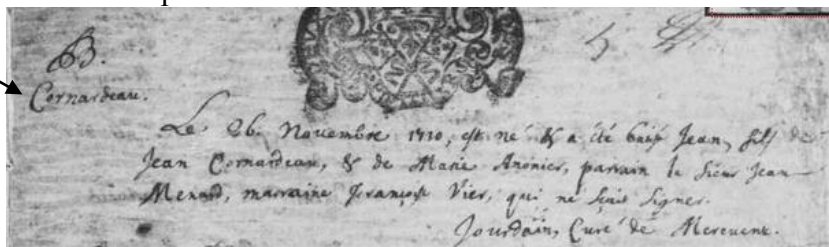 B.
Cornardeau.
Le 26. Novembre 1710, est né & a été batisé Jean, fils de
Jean Cornardeau, & de Marie Anonier, parrain le sieur Jean
Menard, marraine Françoise Vier, qui ne sçait signer.
Jourdain, Curé de Merevent.